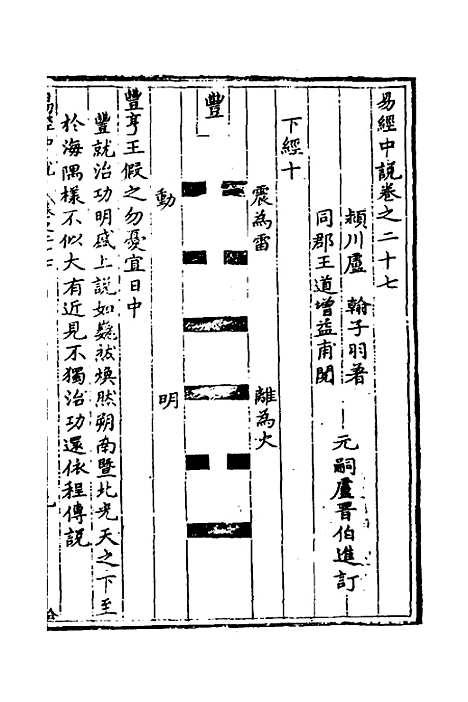 易經中說卷之二十七
潁川盧 翰子羽著 元嗣盧晉伯進訂
同郡王道增益甫閱
下經十
震為雷 離為火
豐
動 明
豐亨王假之勿憂宜日中
豐就治功明盛上說如巍祓煥然朔南暨北光天之下至
於海隅樣不似大有近見不獨治功還依程傳說
易經中說